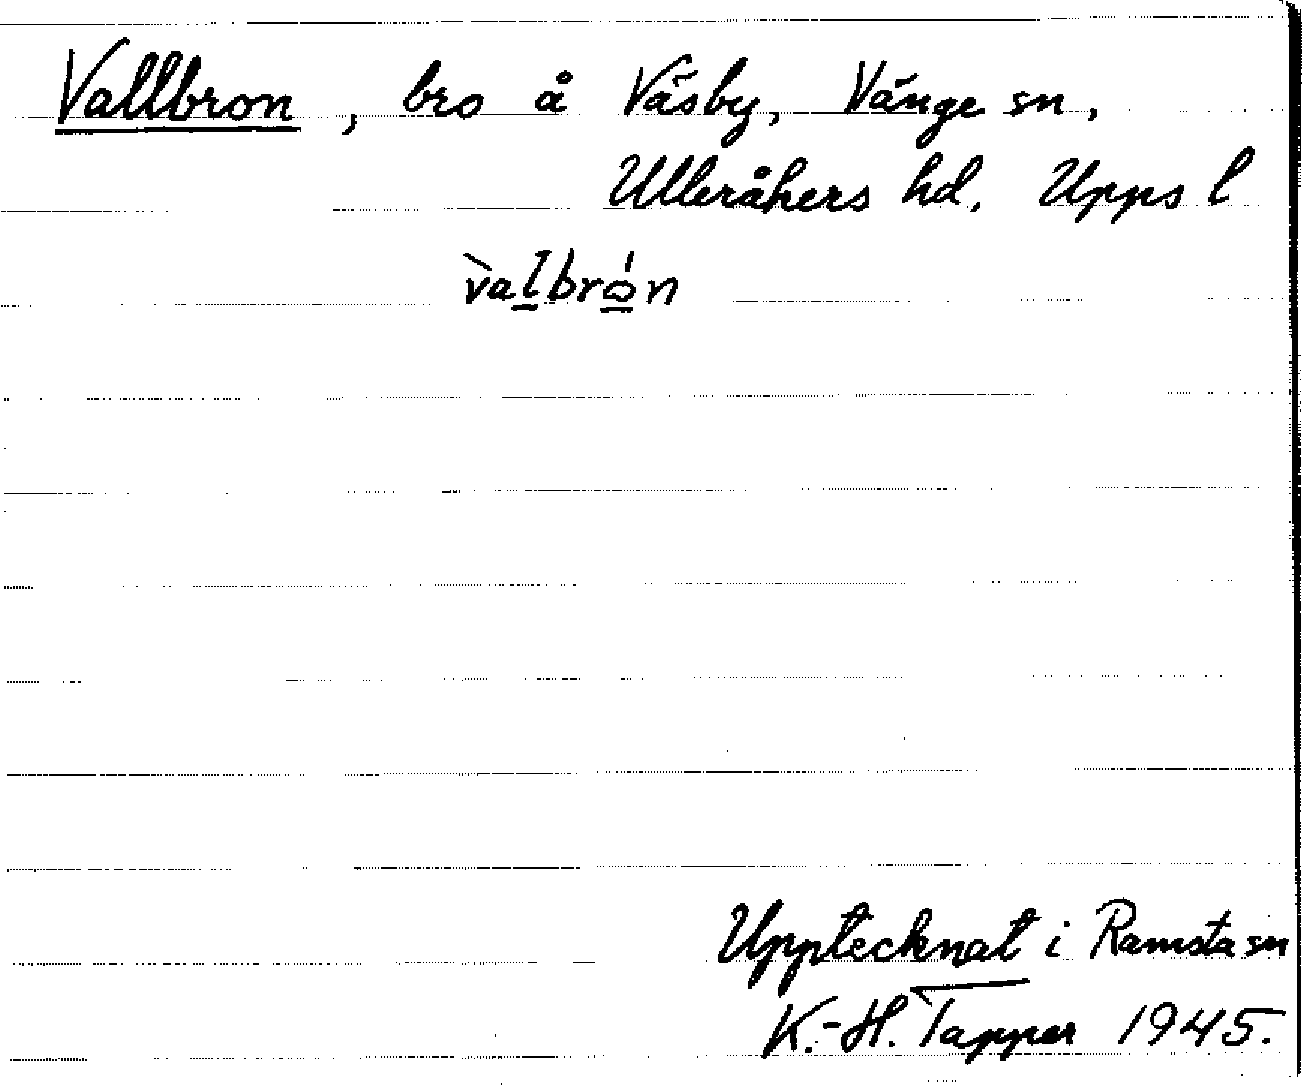 Vallbron, bro å Väsby, Vänge sn,
Ulleråkers hd. Upps l
v̀albrón
Upptecknat i Ramsta sn
K.-H. Tapper 1945.